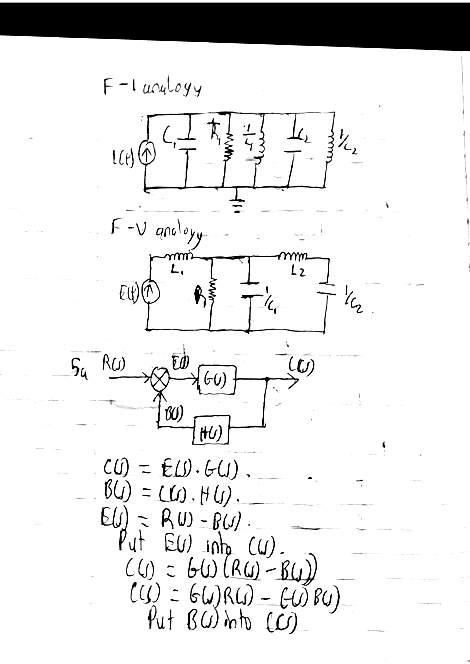 F-I analogy
I(t) C₁ R₁ C₂ 1/L₂
F-V analogy
L₁ L₂
E(t) R₁ 1/C₁ 1/C₂
5a R(s) E(s) G(s) C(s)
B(s) H(s)
C(s) = E(s).G(s).
B(s) = C(s).H(s).
E(s) = R(s) - B(s).
Put E(s) into C(s).
C(s) = G(s)(R(s) - B(s))
C(s) = G(s)R(s) - G(s)B(s)
Put B(s) into C(s)